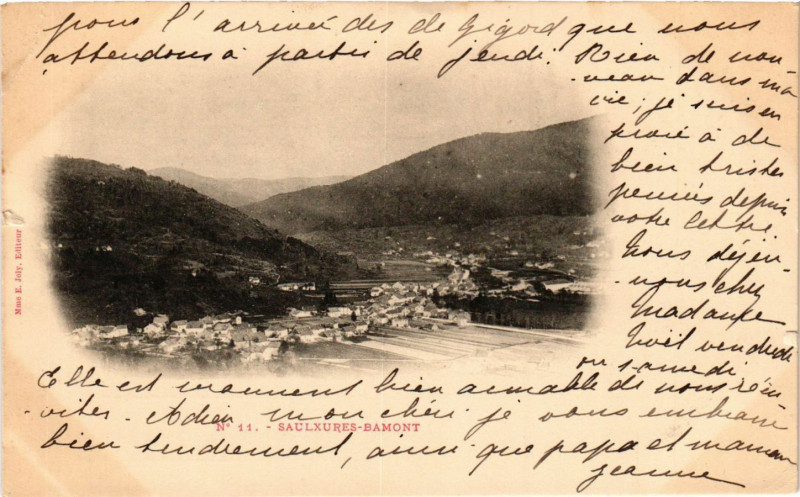 pour l'arrivée des de Gigord que nous
attendons à partir de jeudi. Rien de nou-
-veau dans ma
vie, je suis en
proie à de
bien tristes
pensées depuis
votre lettre
Nous déjeu-
-nons chez
Madame
Noël vendredi
ou samedi
Elle est vraiment bien aimable de nous réin-
-viter. Adieu mon chéri je vous embrasse
bien tendrement, ainsi que papa et maman
Jeanne
N° 11. - SAULXURES-BAMONT
Mme E. Joly, Editeur